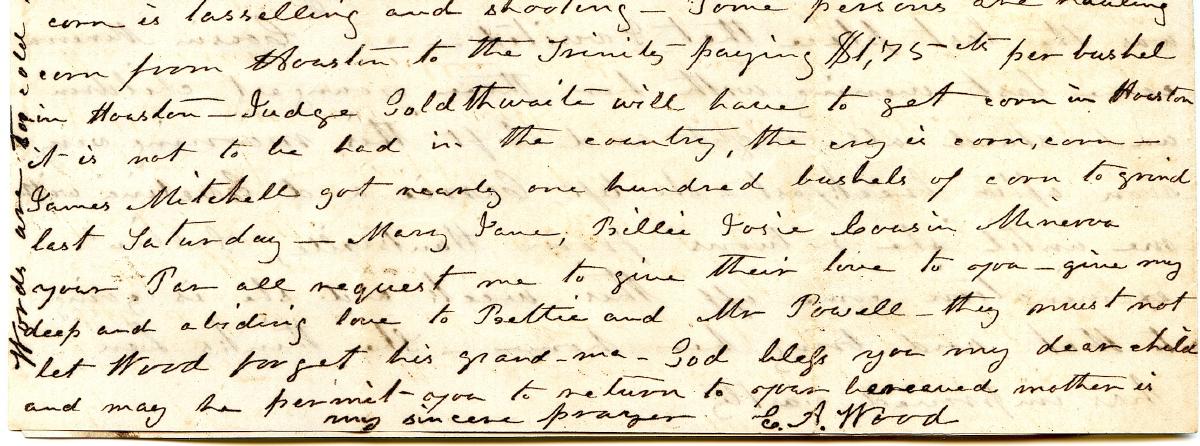 corn is tasselling and shooting – Some persons are hauling
corn from Houston to the Trinity paying $1,75 cts per bushel
in Houston – Judge Goldthwaite will have to get corn in Houston
it is not to be had in the country, the cry is corn, corn –
James Mitchell got nearly one hundred bushels of corn to grind
last Saturday – Mary Jane, Billie Josie Cousin Minerva
your Par all request me to give their love to you – give my
deep and abiding love to Bettie and Mr Powell – they must not
let Wood forget his grand-ma – God bless you my dear child
and may he permit you to return to your bereaved mother is
my sincere prayer E. A. Wood
Words are too cold